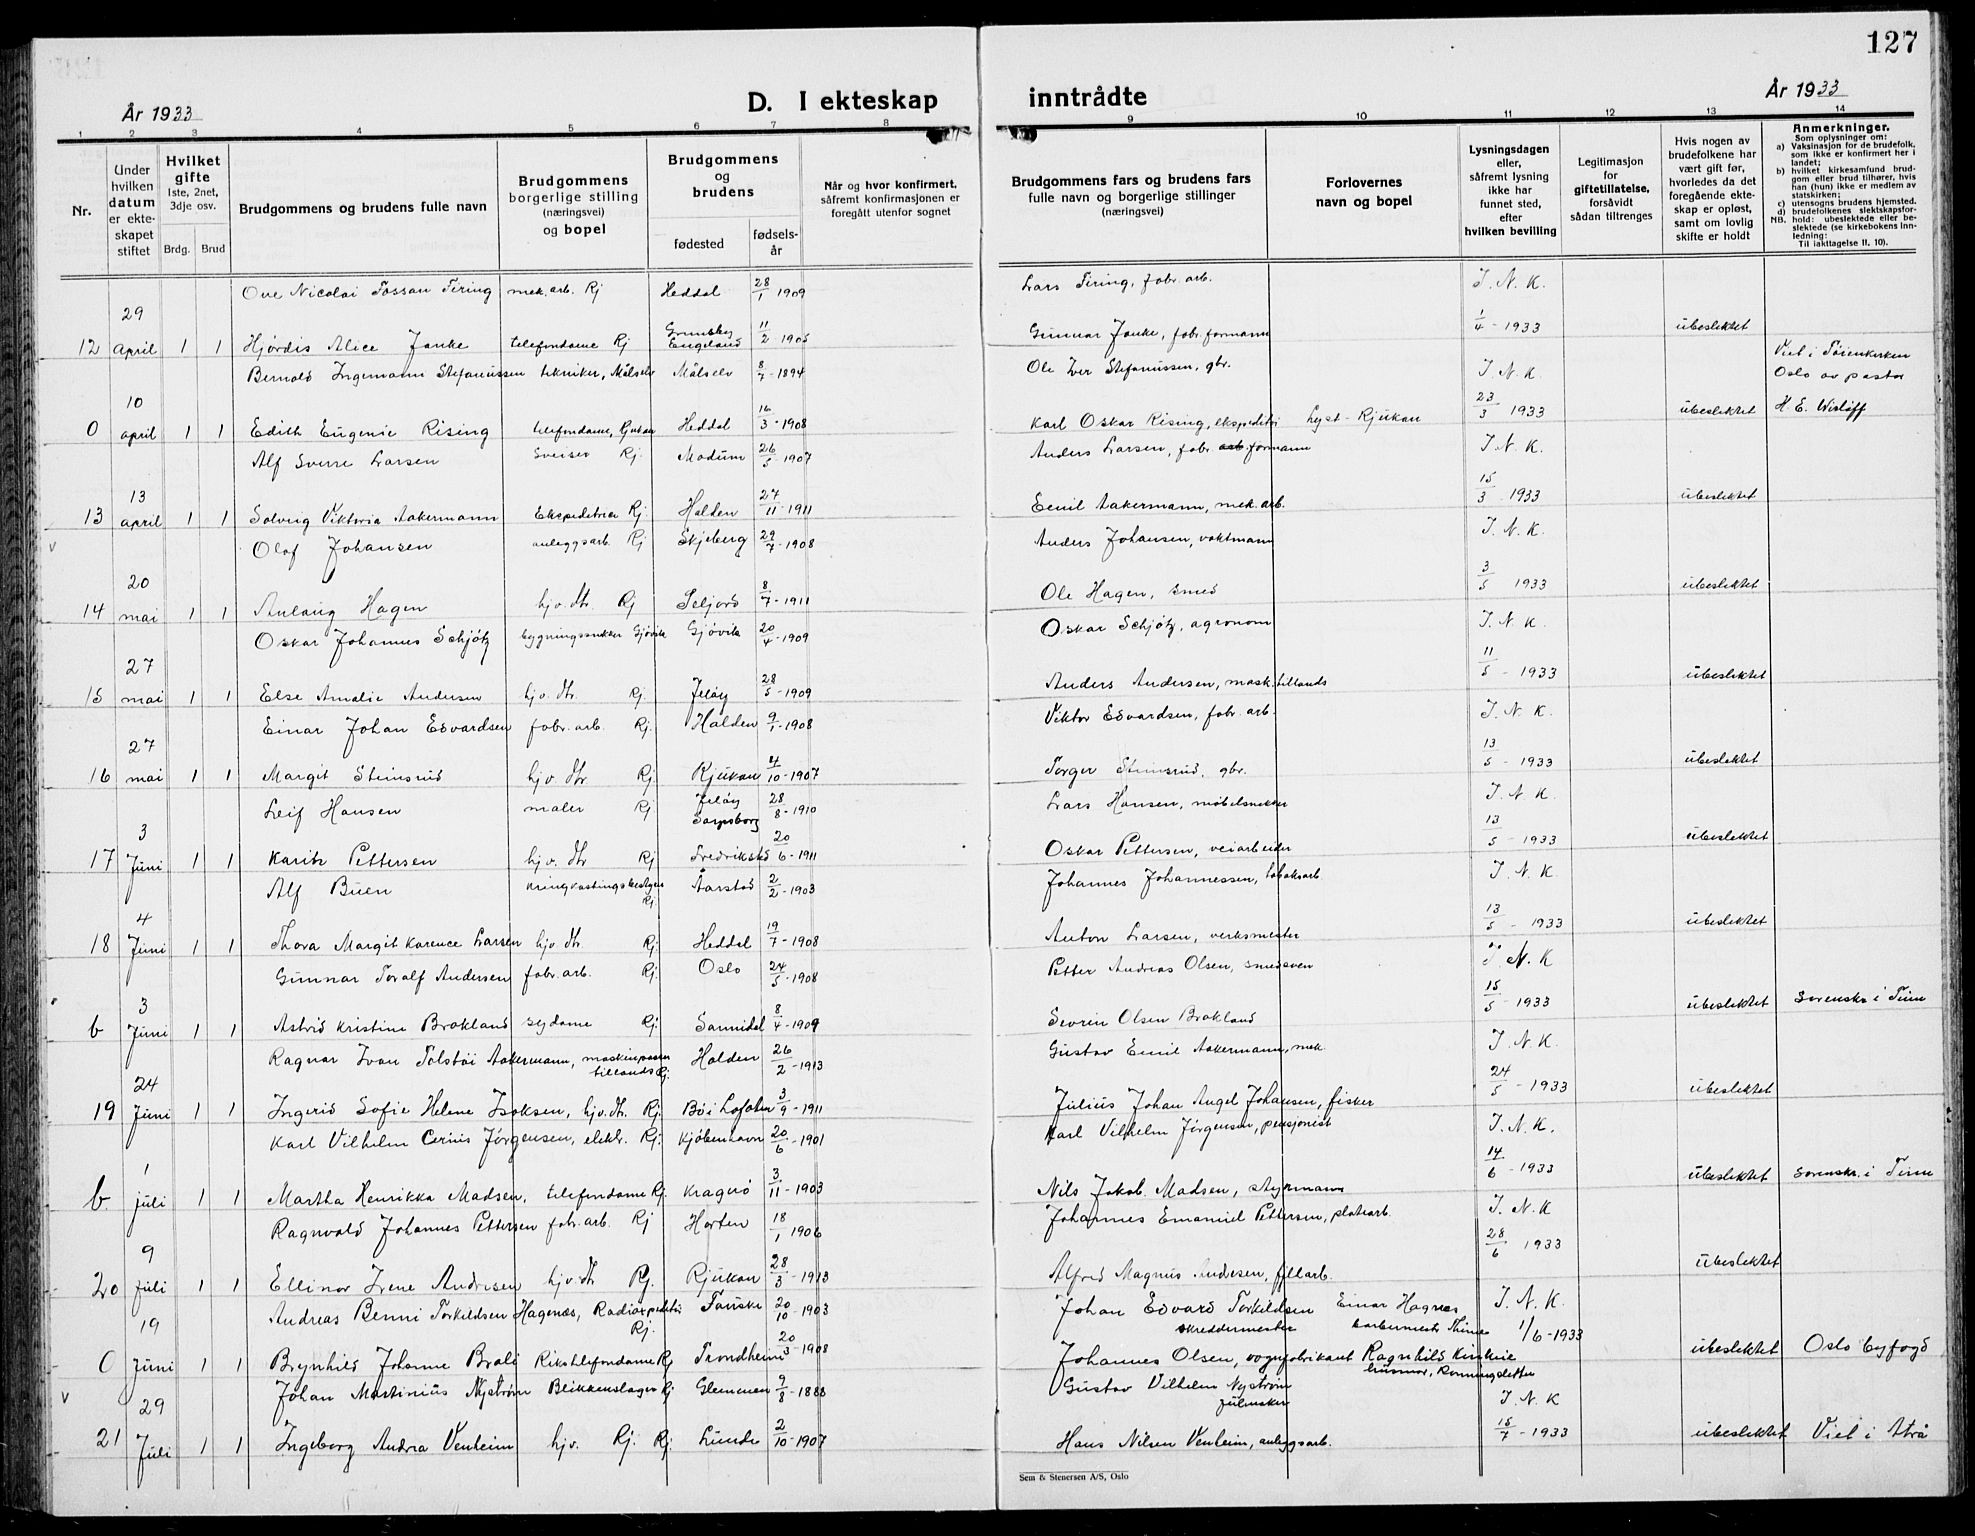 127
År 1933
D. I ekteskap inntrådte
År 1933
1 2 3 4 5 6 7 8 9 10 11 12 13 14
Nr.
Under hvilken datum er ekteskapet stiftet
Hvilket gifte 1ste, 2net, 3dje osv.
Brdg. Brud
Brudgommens og brudens fulle navn
Brudgommens borgerlige stilling (næringsvei) og bopel
Brudgommens og brudens
fødested
fødselsår
Når og hvor konfirmert, såfremt konfirmasjonen er foregått utenfor sognet
Brudgommens fars og brudens fars fulle navn og borgerlige stillinger (næringsvei)
Forlovernes navn og bopel
Lysningsdagen eller, såfremt lysning ikke har funnet sted, efter hvilken bevilling
Legitimasjon for giftetillatelse, forsåvidt sådan tiltrenges
Hvis nogen av brudefolkene har vært gift før, hvorledes da det foregående ekteskap er opløst, samt om lovlig skifte er holdt
Anmerkninger.
Som oplysninger om:
a) Vaksinasjon for de brudefolk, som ikke er konfirmert her i landet;
b) hvilket kirkesamfund brudgom eller brud tilhører, hvis han (hun) ikke er medlem av statskirken;
c) utensogns brudens hjemsted.
d) brudefolkenes slektskapsforhold: ubeslektede eller beslektede (se kirkebokens innledning:
NB.
Til iakttagelse II. 10).
Ove Nicolai Fossan Tering mek. arb. Rj Heddal 28/1 1909 Lars Tering, fabr. arb. I. N. K.
12 29 april 1 1 Hjørdis Alice Janke telefondame Rj Grimsby Engeland 11/2 1905 Gunnar Janke, fabr. formann 1/4 - 1933 ubeslektet
Bernold Ingemann Stefanussen tekniker, Målselv Målselv 8/7 - 1894 Ole Iver Stefanussen, gbr. I. N. K. Viet i Tøienkirken
0 10 april 1 1 Edith Eugenie Rising telefondame, Rjukan Heddal 16/3 - 1908 Karl Oskar Rising, ekspeditør Lyst - Rjukan 23/3 1933 ubeslektet Oslo av pastor H. E. Wisløff
Alf Sverre Larsen Sveiser Rj. Modum 26/5 1907 Anders Larsen, fabr. formann I. N. K.
13 13 april 1 1 Solveig Viktoria Aakermann Ekspeditrice Rj. Halden 27/11 - 1911 Emil Aakermann, mek. arb. 15/3 - 1933 ubeslektet
v Olaf Johansen anleggsarb. Rj Skjeberg 29/7 - 1908 Anders Johansen, vaktmann I. N. K.
14 20 mai 1 1 Aulaug Hagen hj. v. dtr. Rj Seljord 8/7 - 1911 Ole Hagen, smed 3/5 1933 ubeslektet
Oskar Johannes Schjøtz bygningssnikker Gjøvik Gjøvik 20/4 - 1909 Oskar Schjøtz, agronom I. N. K.
15 27 mai 1 1 Else Amalie Andersen hj. v. dtr. Rj. Jeløy 28/5 - 1909 Anders Andersen, mask. tillands 11/5 - 1933 ubeslektet
Einar Johan Edvardsen fabr. arb. Rj. Halden 9/1 - 1908 Viktor Edvardsen, fabr. arb. I. N. K.
16 27 mai 1 1 Margit Steinsrud hj. v. dtr. Rj. Rjukan 4/10 - 1907 Torger Steinsrud, gbr. 13/5 - 1933 ubeslektet
Leif Hansen maler Rj Jeløy Sarpsborg 28/8 - 1910 Lars Hansen, møbelsnekker I. N. K.
17 3 Juni 1 1 Karitz Pettersen hj. v. dtr Rj Fredrikstad 20/6 - 1911 Oskar Pettersen, veiarbeider 13/5 - 1933 ubeslektet
Alf Buen kringkastingsbestyrer Rj. Aarstad 2/2 - 1903 Johannes Johannessen, tobaksarb I. N. K.
18 4 Juni 1 1 Thora Margit Karence Larsen hjv. dtr. Rj. Heddal 19/7 - 1908 Anton Larsen, verksmester 13/5 - 1933 ubeslektet
Gunnar Toralf Andersen fabr. arb. Rj. Oslo 24/5 - 1908 Petter Andreas Olsen, smedsven I. N. K
b 3 Juni 1 1 Astrid Kristine Brokland sydame Rj. Sannidal 8/4 - 1909 Severin Olsen Brokland 15/5 - 1933 ubeslektet Sorenskr. i Tinn
Ragnar Ivan Tolstoi Aakermann, maskinpasser tillands Rj. Halden 26/2 - 1913 Gustav Emil Aakermann, mek. I. N. K.
19 24 Juni 1 1 Ingerid Sofie Helene Isaksen, hj. v. dtr. Rj. Bø i Lofoten 3/9 - 1911 Julius Johan Angel Johansen, fisker 24/5 - 1933 ubeslektet
Karl Vilhelm Cerius Jørgensen, elektr. Rj. Kjøbenhavn 20/6 - 1901 Karl Vilhelm Jørgensen, pensjonist I. N. K.
b. 1 juli 1 1 Martha Henrikka Madsen, telefondame Rj. Kragerø 3/11 - 1903 Nils Jakob Madsen, styrmann 14/6 - 1933 ubeslektet Sorenskr. i Tinn
Ragnvald Johannes Pettersen fabr. arb. Rj Horten 18/1 1906 Johannes Emanuel Pettersen, platearb. I. N. K
20 9 juli 1 1 Ellinor Irene Andresen hj. v. dtr Rj. Rjukan 28/3 - 1913 Alfred Magnus Andresen, fillarb. 28/6 1933 ubeslektet
Andreas Benni Torkildsen Hagenæs, Radioekspeditør Rj. Fauske 20/10 - 1903 Johan Edvard Torkildsen skreddermester Einar Hagnæs barbermester Thines I. N. K. 1/6 - 1933
0 19 Juni 1 1 Brynhild Johanne Brali Rikstelefondame Rj Trondheim 20/3 - 1908 Johannes Olsen, vognfabrikant Ragnhild Kinskie husmor, Ronningsletten ubeslektet Oslo byfogd
v Johan Martinius Nystrøm Blikkenslager Rj Glemmen 9/8 - 1888 Gustav Vilhelm Nystrøm I. N. K
21 29 Juli 1 1 Ingeborg Andrea Venheim hjv. Rj. Rj. Lunde 2/10 - 1907 Hans Nilsen Venheim, anleggsarb. 15/7 - 1933 ubeslektet Viet i Atrå
Sem & Stenersen A/S, Oslo